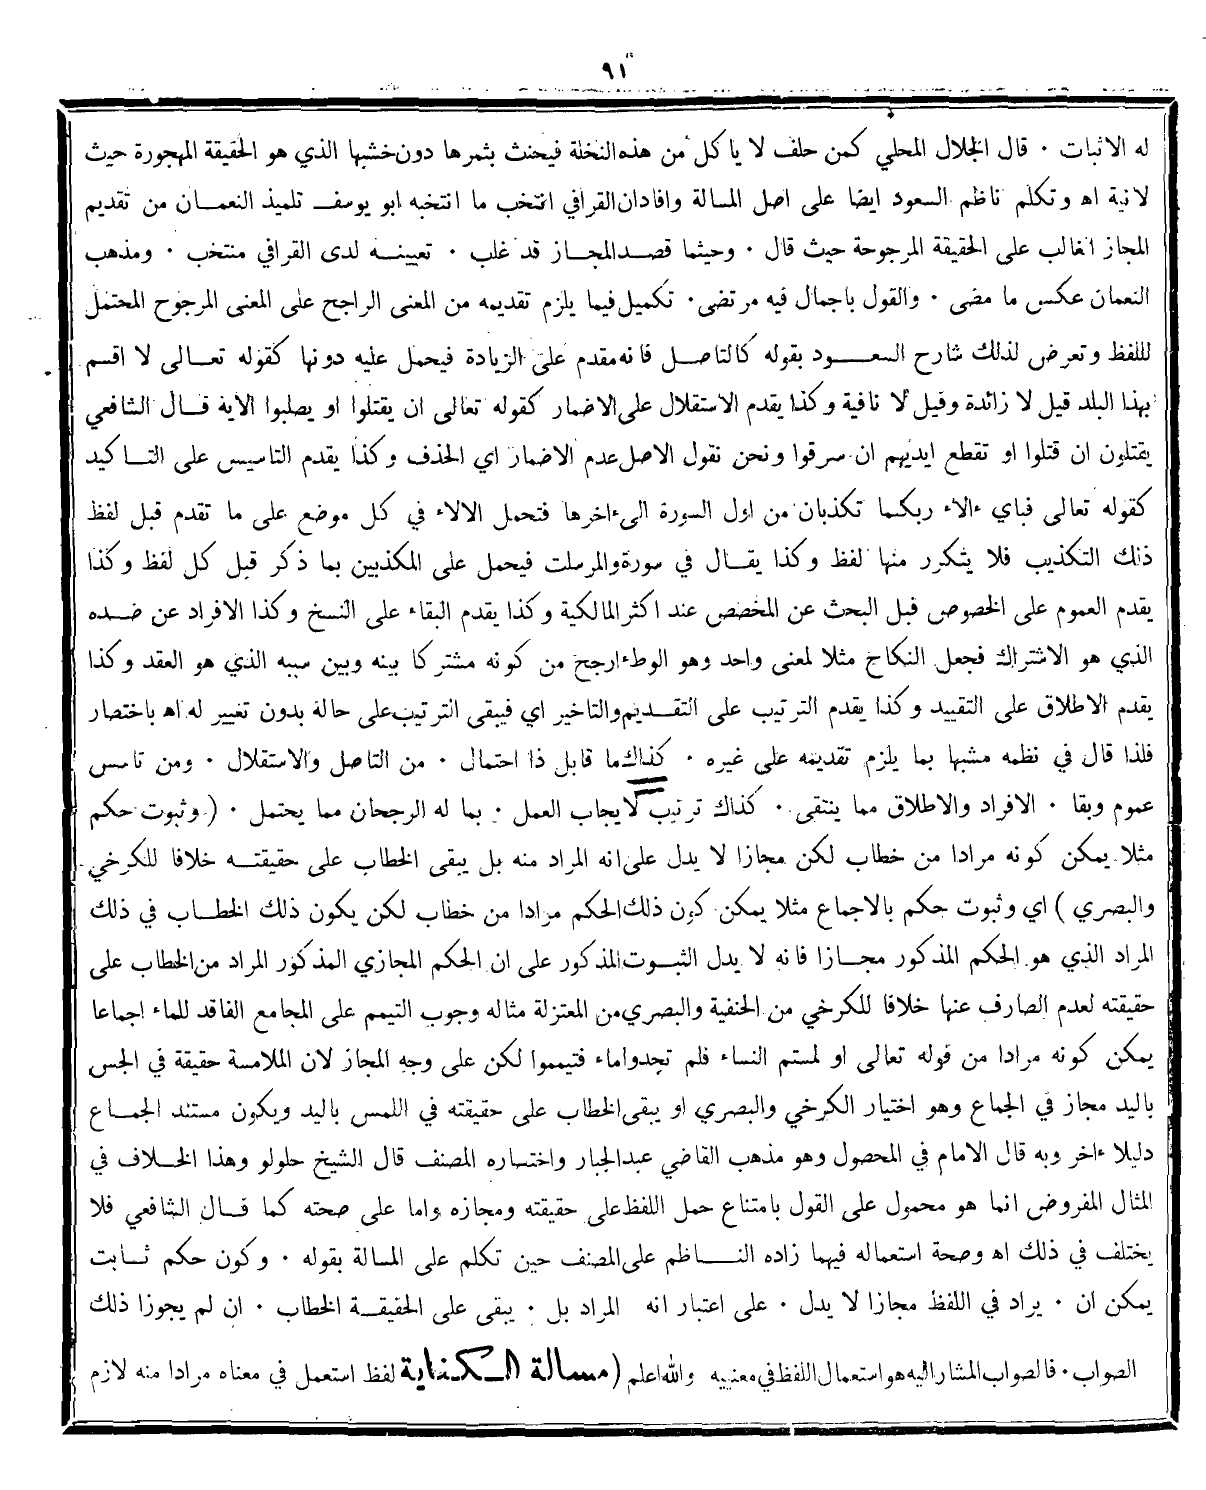 ٩١
له الاثبات ٠ قال الجلال المحلي كمن حلف لا ياكل من هذه النخلة فيحنث بثمرها دون خشبها الذي هو الحقيقة المهجورة حيث
لا نية اه وتكلم ناظم السعود ايضا على اصل المسالة وافاد ان القرافي انتخب ما انتخبه ابو يوسف تلميذ النعمان من تقديم
المجاز الغالب على الحقيقة المرجوحة حيث قال ٠ وحيثما قصد المجاز قد غلب ٠ تعيينه لدى القرافي منتخب ٠ ومذهب
النعمان عكس ما مضى ٠ والقول باجمال فيه مرتضى ٠ تكميل فيما يلزم تقديمه من المعنى الراجح على المعنى المرجوح المحتمل
لللفظ وتعرض لذلك شارح السعود بقوله كالتاصل فانه مقدم على الزيادة فيحمل عليه دونها كقوله تعالى لا اقسم
بهذا البلد قيل لا زائدة وقيل لا نافية وكذا يقدم الاستقلال على الاضمار كقوله تعالى ان يقتلوا او يصلبوا الاية قال الشافعي
يقتلون ان قتلوا او تقطع ايديهم ان سرقوا ونحن نقول الاصل عدم الاضمار اي الحذف وكذا يقدم التاسيس على التاكيد
كقوله تعالى فباي ءالاء ربكما تكذبان من اول السورة الى ءاخرها فتحمل الالاء في كل موضع على ما تقدم قبل لفظ
ذلك التكذيب فلا يتكرر منها لفظ وكذا يقال في سورة والمرسلت فيحمل على المكذبين بما ذكر قبل كل لفظ وكذا
يقدم العموم على الخصوص قبل البحث عن المخصص عند اكثر المالكية وكذا يقدم البقاء على النسخ وكذا الافراد عن ضده
الذي هو الاشتراك فجعل النكاح مثلا لمعنى واحد وهو الوطء ارجح من كونه مشتركا بينه وبين سببه الذي هو العقد وكذا
يقدم الاطلاق على التقييد وكذا يقدم الترتيب على التقديم والتاخير اي فيبقى الترتيب على حالة بدون تغيير له اه باختصار
فلذا قال في نظمه مشبها بما يلزم تقديمه على غيره ٠ كذاك ما قابل ذا احتمال ٠ من التاصل والاستقلال ٠ ومن تاسس
عموم وبقا ٠ الافراد والاطلاق مما ينتقى ٠ كذاك ترتيب لايجاب العمل ٠ بما له الرجحان مما يحتمل ٠ ( وثبوت حكم
مثلا يمكن كونه مرادا من خطاب لكن مجازا لا يدل على انه المراد منه بل يبقى الخطاب على حقيقته خلافا للكرخي
والبصري ) اي وثبوت حكم بالاجماع مثلا يمكن كون ذلك الحكم مرادا من خطاب لكن يكون ذلك الخطاب في ذلك
المراد الذي هو الحكم المذكور مجازا فانه لا يدل الثبوت المذكور على ان الحكم المجازي المذكور المراد من الخطاب على
حقيقته لعدم الصارف عنها خلافا للكرخي من الحنفية والبصري من المعتزلة مثاله وجوب التيمم على المجامع الفاقد للماء اجماعا
يمكن كونه مرادا من قوله تعالى او لمستم النساء فلم تجدوا ماء فتيمموا لكن على وجه المجاز لان الملامسة حقيقة في الجس
باليد مجاز في الجماع وهو اختيار الكرخي والبصري او يبقى الخطاب على حقيقته في اللمس باليد ويكون مستند الجماع
دليلا ءاخر وبه قال الامام في المحصول وهو مذهب القاضي عبد الجبار واختساره المصنف قال الشيخ حلولو وهذا الخلاف في
المثال المفروض انما هو محمول على القول بامتناع حمل اللفظ على حقيقته ومجازه واما على صحته كما قال الشافعي فلا
يختلف في ذلك اه وصحة استعماله فيهما زاده الناظم على المصنف حين تكلم على المسالة بقوله ٠ وكون حكم ثابت
يمكن ان ٠ يراد في اللفظ مجازا لا يدل ٠ على اعتبار انه المراد بل ٠ يبقى على الحقيقة الخطاب ٠ ان لم يجوزا ذلك
الصواب ٠ فالصواب المشار اليه هو استعمال اللفظ في معنييه والله اعلم ( مسالة الكناية لفظ استعمل في معناه مرادا منه لازم